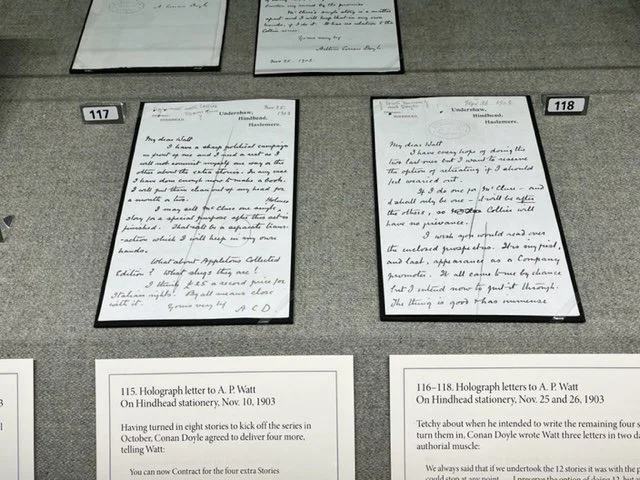 A. Conan Doyle
Mr Clure's single story is a matter
apart and I will keep that in my own
hands, if I do it. It has no relation to the
Collier series.
Yours very truly
Arthur Conan Doyle
Nov 25. 1903.
117
Nov 25.
1903
Undershaw,
Hindhead,
Haslemere.
My dear Watt
I have a sharp political campaign
in front of me and I need a rest so I
will not commit myself one way or the
other about the extra stories. In any case
I have done enough now to make a book.
I will put them clean out of my head for
a month or two.
I may sell Mc Clure one single Holmes
story for a special purpose after this set is
finished. That will be a separate trans-
-action which I will keep in my own
hands.
What about Appletons Collected
Edition? What slugs they are!
I think £25 a record price for
Italian rights. By all means close
with it.
Yours very try
A C D
118
Nov 26. 1903.
Undershaw,
Hindhead,
Haslemere.
My dear Watt
I have every hope of doing the
two last ones but I want to reserve
the option of retreating if I should
feel wearied out.
If I do one for McClure - and
it shall only be one - it will be after
the others, so Collier will
have no grievance.
I wish you would read over
the enclosed prospectus. It is my first,
and last, appearance as a Company
promoter. It all came to me by chance
but I intend now to put it through.
The thing is good & has immense
115. Holograph letter to A. P. Watt
On Hindhead stationery, Nov. 10, 1903
Having turned in eight stories to kick off the series in
October, Conan Doyle agreed to deliver four more,
telling Watt:
You can now Contract for the four extra Stories
116–118. Holograph letters to A. P. Watt
On Hindhead stationery, Nov. 25 and 26, 1903
Tetchy about when he intended to write the remaining four s
turn them in, Conan Doyle wrote Watt three letters in two da
authorial muscle:
We always said that if we undertook the 12 stories it was with the p